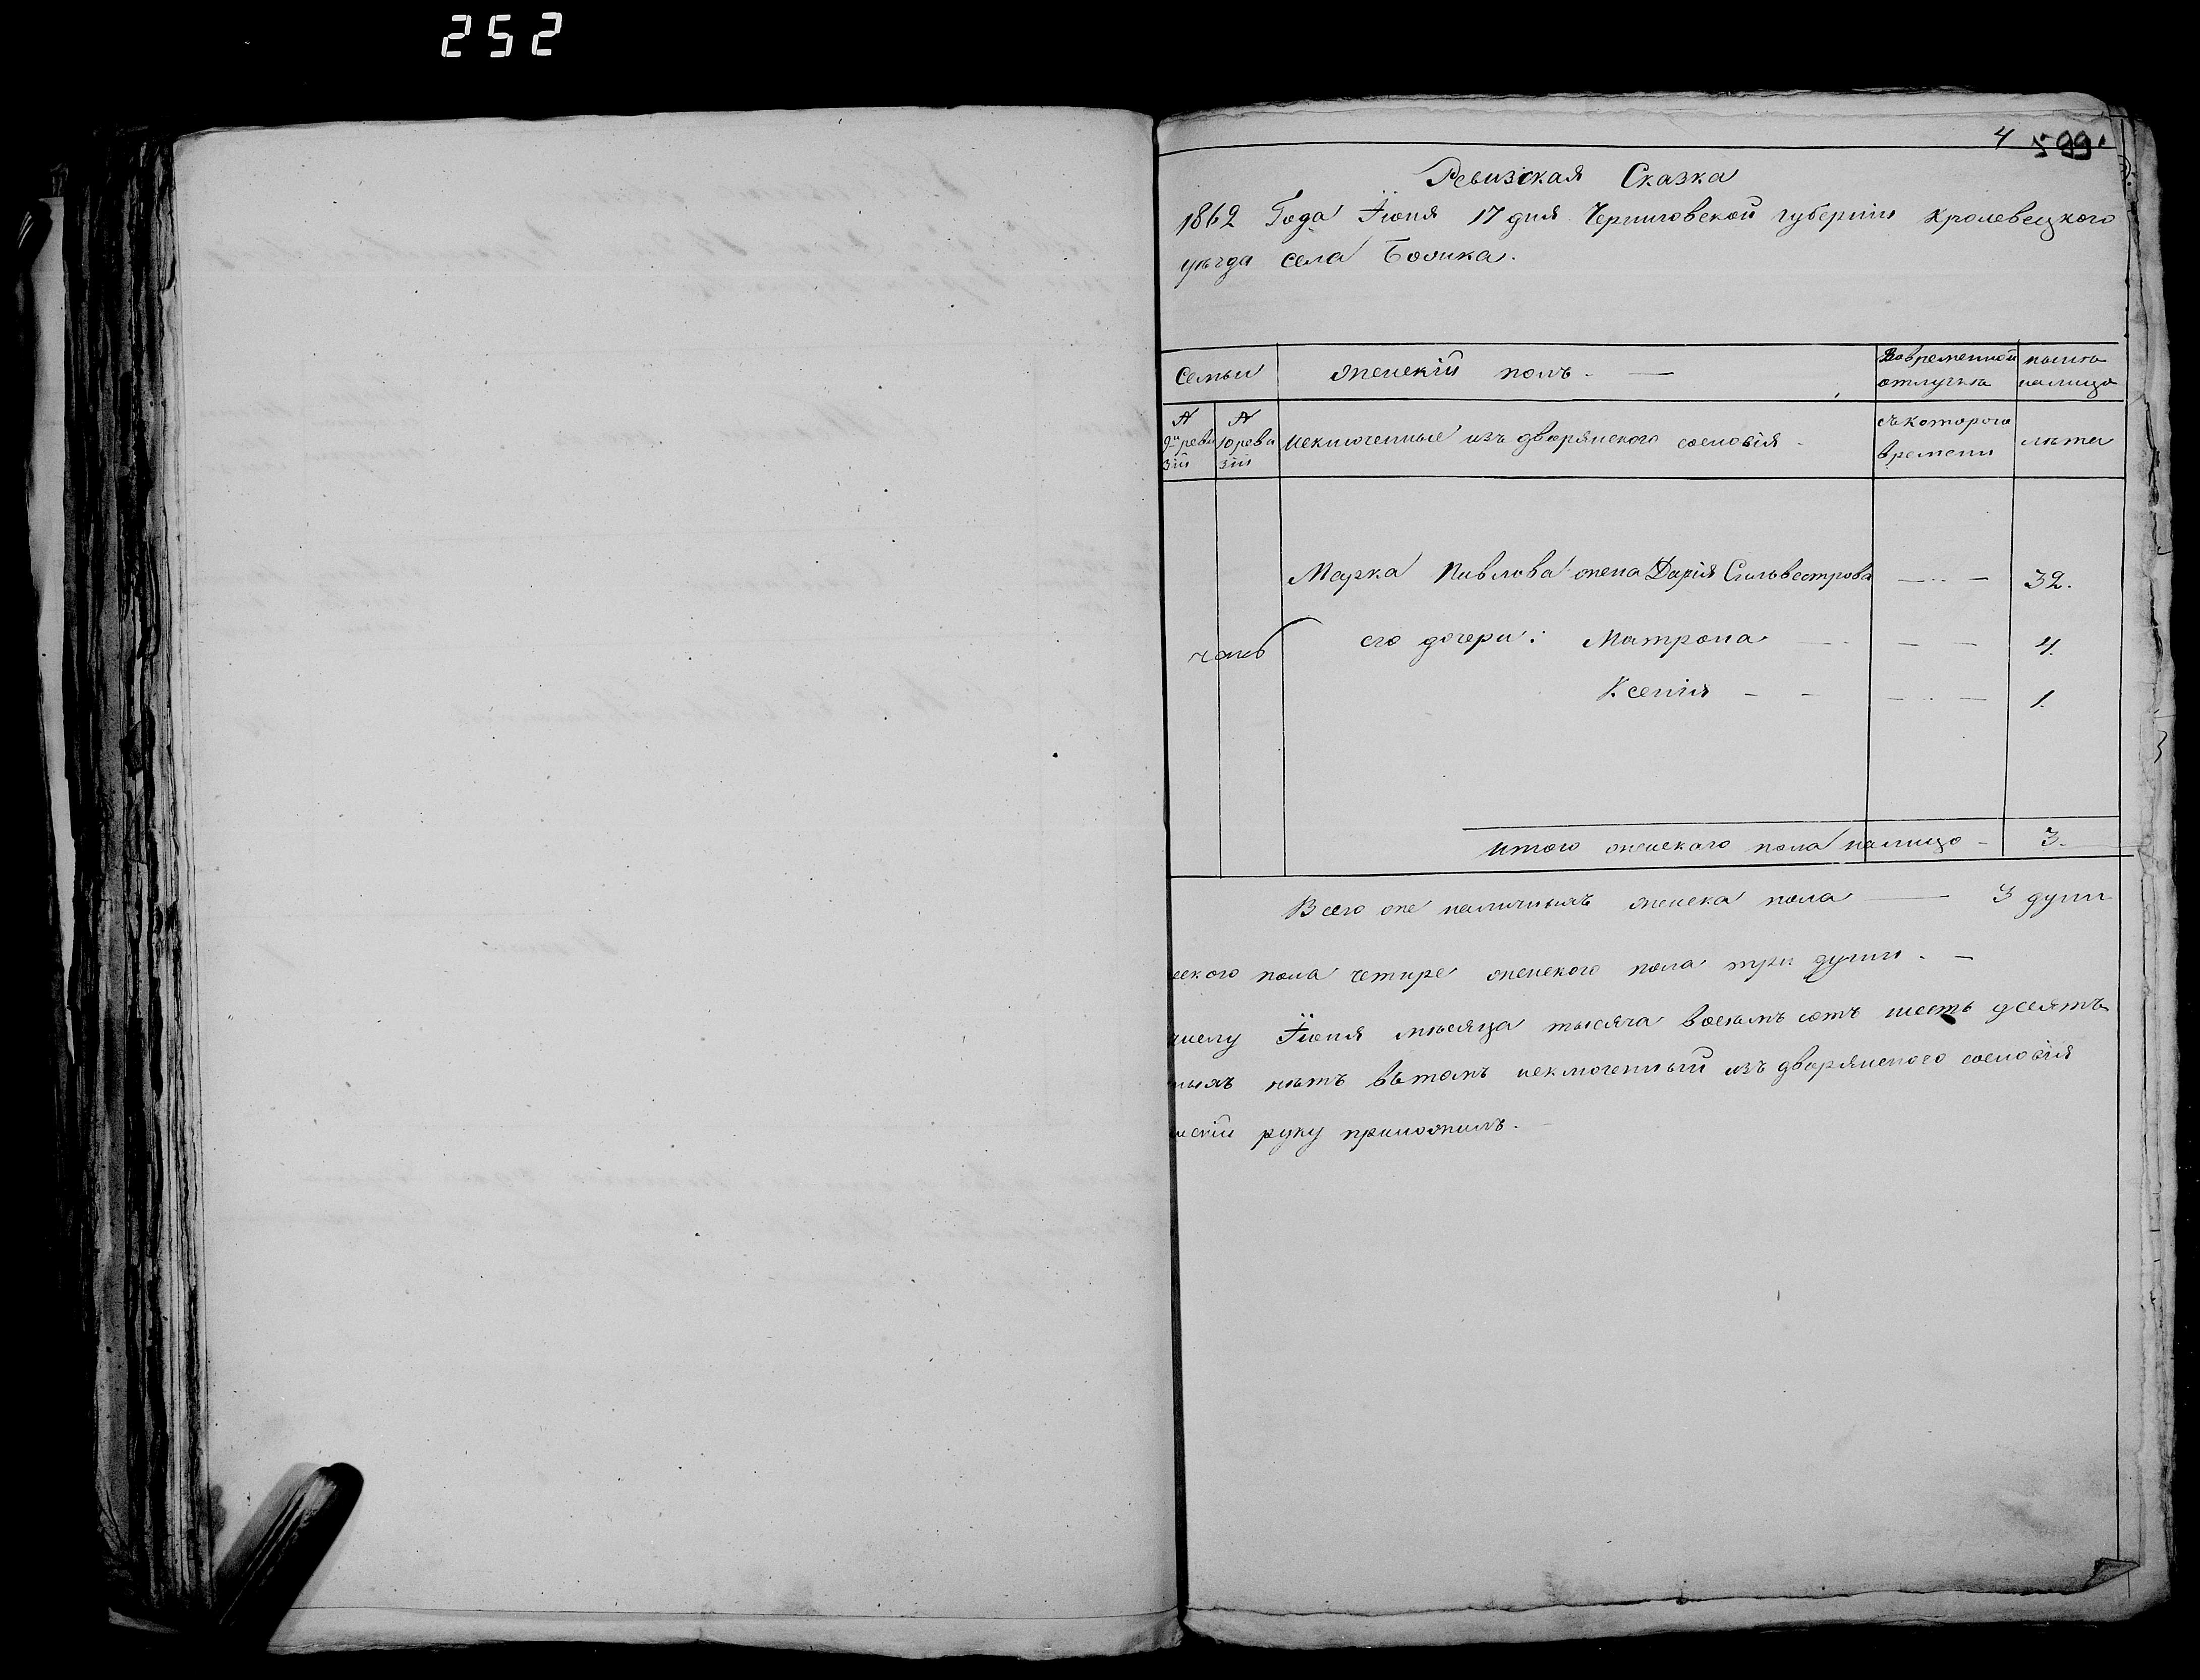 252
4 599
Ревизская Сказка
1862 Года Іюня 17 дня Черниговской губерніи Кролевецкого
уѣзда села
Семьи женскій полъ. Вовременной отлучкѣ нынѣ налицо
№ 9й ревизіи № 10 ревизіи исключенные изъ дворянского сословія съкоторого времени лѣта
Марка Павлова жена Дарія Сильвестрова 32.
его дочери: Матрона 4.
Ксенія 1.
итого женскаго пола налицо 3.
Всего же наличныхъ женска пола 3 души
ского пола четире женского пола три души.
числу Іюня мѣсяца тысяча восемь сотъ шесть десятъ
ныхъ нѣтъ вътомъ исключенный изъ дворянского сословія
скій руку приложилъ.